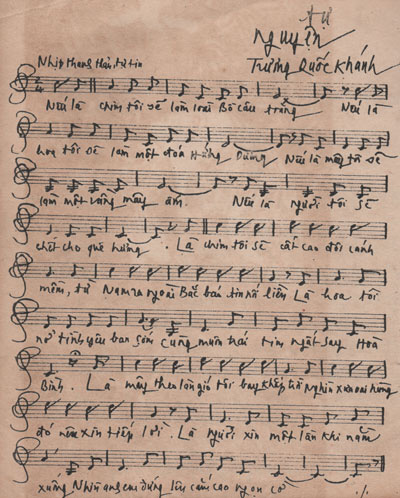 Tự
Nguyện
Trương Quốc Khánh
Nhịp thong thả, tự tin
Nếu là chim tôi sẽ làm loài Bồ câu trắng Nếu là
hoa tôi sẽ làm một đóa Hướng Dương Nếu là mây tôi sẽ
làm một vầng mây ấm. Nếu là người tôi sẽ
chết cho quê hương. Là chim tôi sẽ cất cao đôi cánh
mềm, từ Nam ra ngoài Bắc báo tin nối liền Là hoa tôi
nở tình yêu ban sớm cùng muôn trái tim ngất say Hòa
Bình. Là mây theo làn gió tôi bay khắp trời nghìn xưa oai hùng
đó nêm xin tiếp lời. Là người xin một lần khi nằm
xuống Nhìn anh em đứng lên cắm cao ngọn cờ